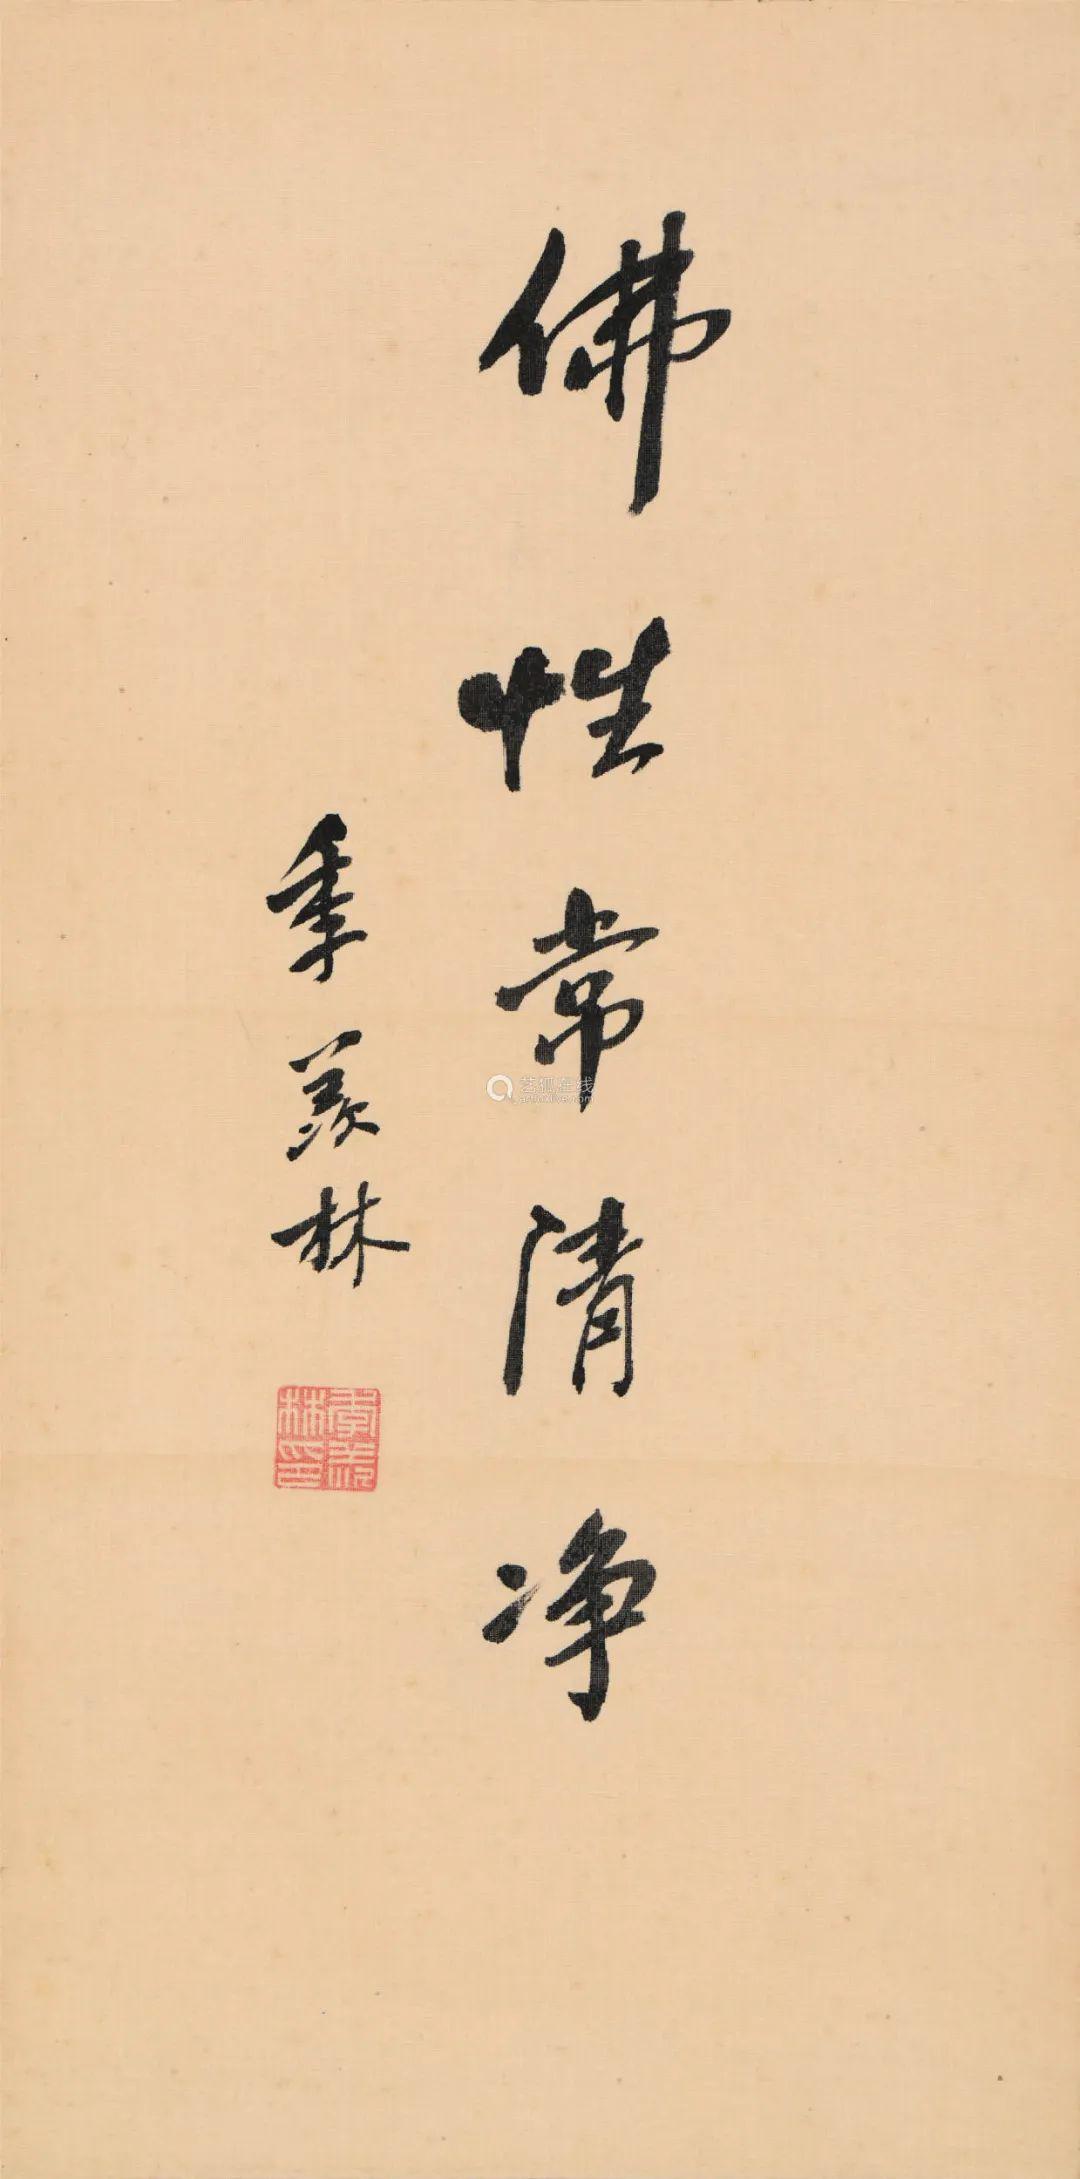 佛性常清净
季羡林
季羡林印
艺狐在线
artfoxlive.com